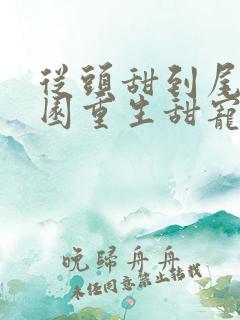 從頭甜到尾
園重生甜寵
晚歸舟舟
未經同意禁止轉載